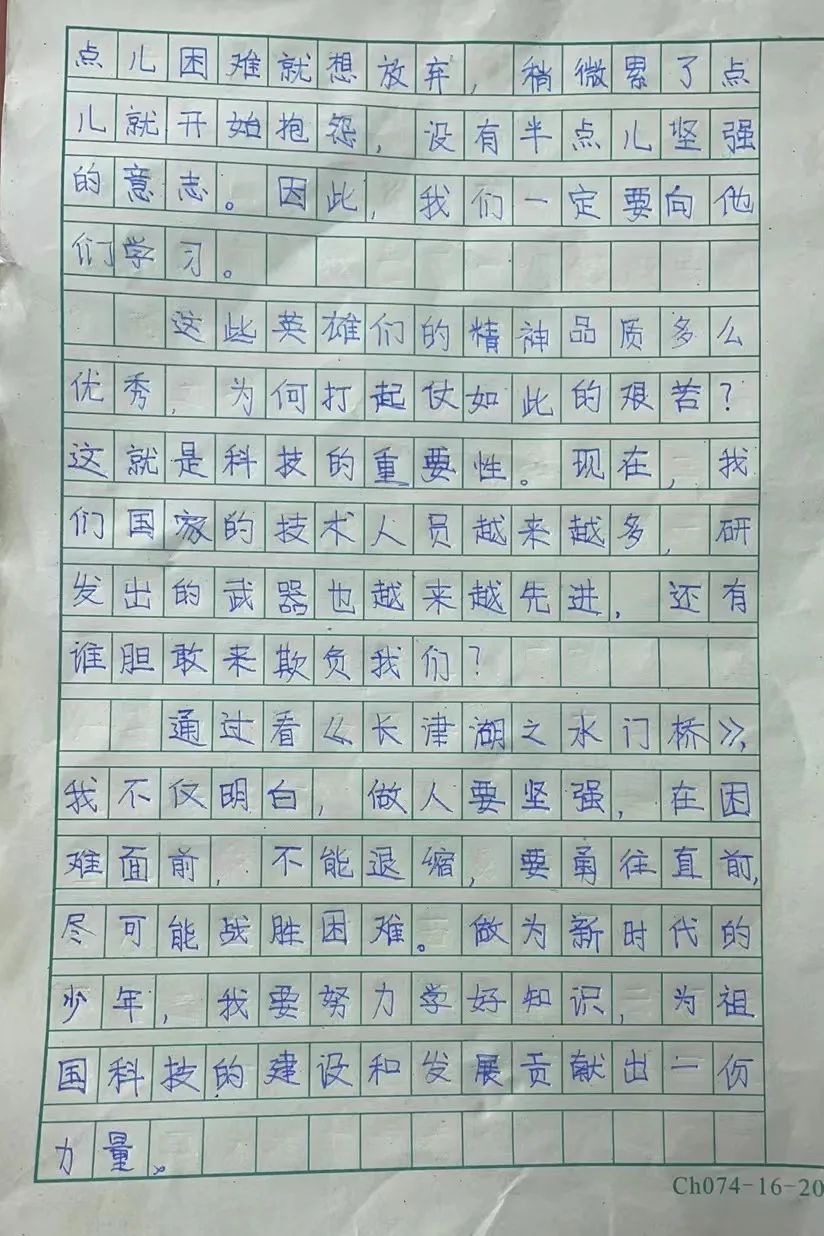 点儿困难就想放弃，稍微累了点
儿就开始抱怨，没有半点儿坚强
的意志。因此，我们一定要向他
们学习。
这些英雄们的精神品质多么
优秀，为何打起仗如此的艰苦？
这就是科技的重要性。现在，我
们国家的技术人员越来越多，研
发出的武器也越来越先进，还有
谁胆敢来欺负我们？
通过看《长津湖之水门桥》，
我不仅明白，做人要坚强，在困
难面前，不能退缩，要勇往直前，
尽可能战胜困难。做为新时代的
少年，我要努力学好知识，为祖
国科技的建设和发展贡献出一份
力量。
Ch074-16-20